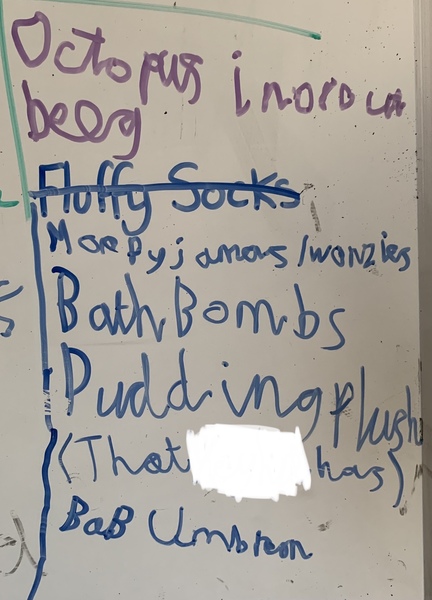 Octopus inoroun
beerg
Fluffy Socks
More Pyjamas/wonzies
Bath Bombs
Pudding plush
(That has)
BaB Umbreon